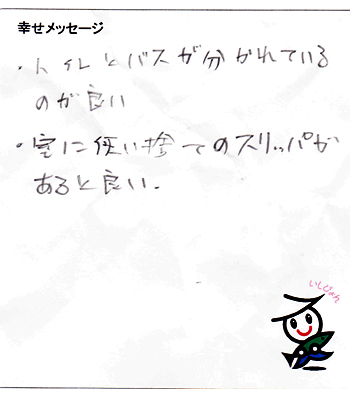 幸せメッセージ
・トイレとバスが分かれている
のが良い
・室に使い捨てのスリッパが
あると良い.